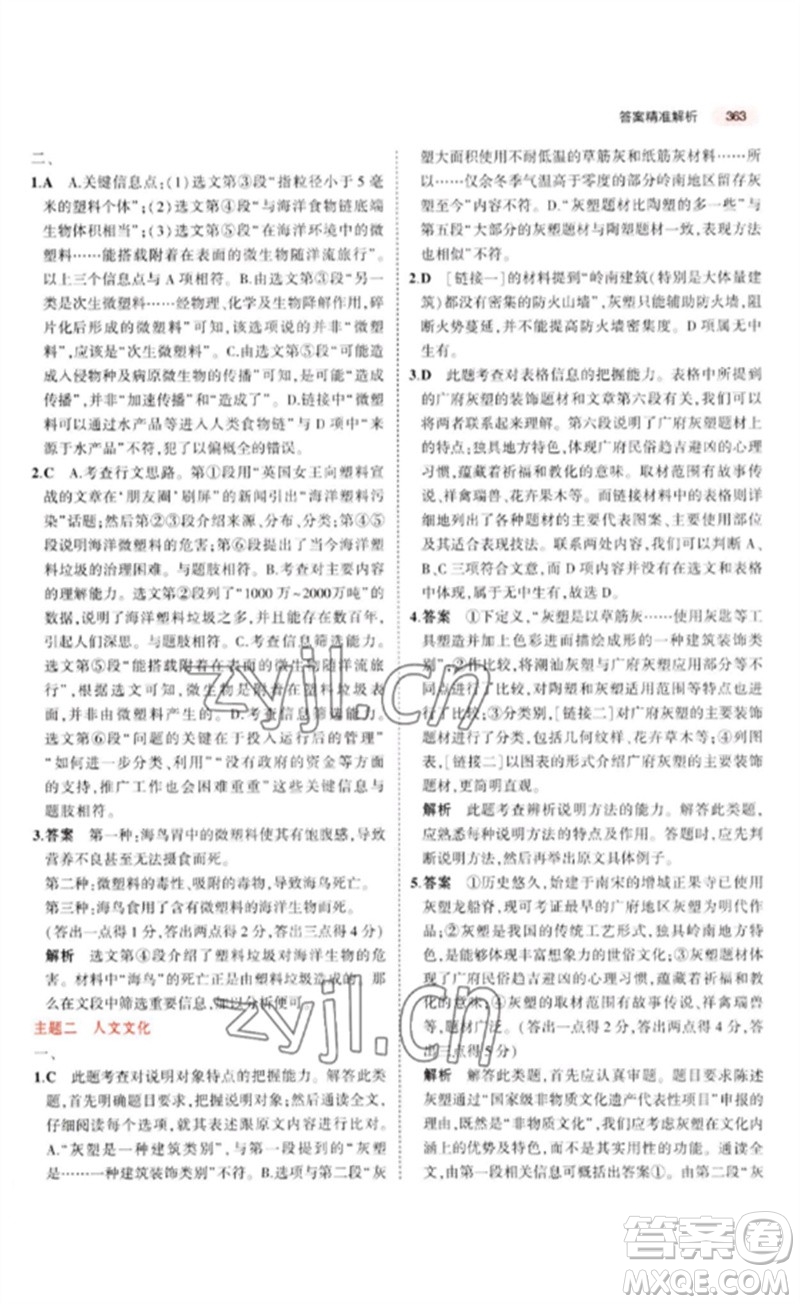 答案精准解析 363
二、
1.A A.关键信息点:(1)选文第③段“指粒径小于5毫
米的塑料个体”;(2)选文第④段“与海洋食物链底端
生物体积相当”;(3)选文第⑤段“在海洋环境中的微
塑料……能搭载附着在表面的微生物随洋流旅行”。
以上三个信息点与A项相符。B.由选文第③段“另
一类是次生微塑料……经物理、化学及生物降解作用,碎
片化后形成的微塑料”可知,该选项说的并非“微塑
料”,应该是“次生微塑料”。C.由选文第⑤段“可能造
成入侵物种及病原微生物的传播”可知,是“可能造成
传播”,并非“加速传播”和“造成了”。D.链接中“微塑
料可以通过水产品等进入人类食物链”与D项中“主要
来源于水产品”不符,犯了以偏概全的错误。
2.C A.考查行文思路。第①段用“英国女王向塑料宣
战的文章在‘朋友圈’刷屏”的新闻引出“海洋塑料污
染”话题;然后第②③段介绍来源、分布、分类;第④⑤
段说明海洋微塑料的危害;第⑥段提出了当今海洋塑
料垃圾的治理困难。与题肢相符。B.考查对主要内容
的理解能力。选文第②段列举了“1000万~2000万吨”的
数据,说明了海洋塑料垃圾之多,并且带来影响之大,
引起人们深思。与题肢相符。C.考查信息筛选能力。
选文第⑤段“能搭载附着在表面的微生物随洋流旅
行”,可以得知,微生物是附着在塑料垃圾表面的,
并非由微塑料产生的。D.考查信息筛选能力。
选文第⑥段“问题的关键在于投入运行后的管理”
“如何进一步分类、利用”“没有政府的资金等方面
的支持,推广工作也会困难重重”这些关键信息与
题肢相符。
3.答案 第一种:海鸟胃中的微塑料使其有饱腹感,导致
营养不良甚至无法摄食而死。
第二种:微塑料的毒性、吸附的毒物,导致海鸟死亡。
第三种:海鸟食用了含有微塑料的海洋生物而死。
(答出一点得1分,答出两点得2分,答出三点得4分)
解析 选文第④段介绍了塑料垃圾对海洋生物的危
害。材料中“海鸟”的死亡正是由塑料垃圾造成的。那
么在文段中筛选相关信息,加以分析便可。
主题二 人文文化
一、
1.C 此题考查对说明对象特点的把握能力。解答此类
题,首先明确题目要求,把握选文主要内容,通读全文,
仔细阅读每个选项,将其表述跟原文内容进行对比。
A.“灰塑是一种建筑类别”与第二段的“灰塑
是……一种建筑装饰类别”不符。B.选项与第二段“灰
塑大面积使用不耐低温的草筋灰和纸筋灰材料……所
以……仅余冬季气温高于零度的部分岭南地区留存灰
塑至今”内容不符。D.“灰塑题材比陶塑的多一些”与
第五段“大部分的灰塑题材与陶塑题材一致,表现形式
也近似”不符。
2.D [链接一]的材料提到“岭南建筑(特别是大体量建
筑)都没有密集的防火山墙”,灰塑可以减少防火墙,阻
断火势蔓延,并非提高了防火墙密集度。D项属无中
生有。
3.D 此题考查对表格信息的把握能力。表格中所提到
的广府灰塑的装饰题材和文章第六段紧密相关,我们可以
将两者联系起来理解。第六段说明了广府灰塑题材上
的特点:独具地方色彩,体现了广府民俗趋吉避凶的心理
习惯,蕴藏着祈福和教化的意味。取材范围有故事传
说、祥禽瑞兽、花卉果木等。而链接材料中的表格则详
细地列出了各种题材的主要代表图案、主要代表纹样
及表现技法。联系两者内容,并结合原文可知,A、
B、C三项符合文意。D项属无中生有,故选D。
4.答案 ①下定义,“灰塑是以草筋灰……使用灰匙等工
具塑造并加上色彩进而描绘成形的一种建筑装饰类
别”;②作比较,将潮汕灰塑与广府灰塑应用部分等不
同点进行比较,对灰塑与陶塑的题材和表现形式以及
适用范围等特点也进行了比较;③分类别,
[链接二]对广府灰塑的主要装饰
题材进行了分类,如人物、花卉草木等;④
画图表,[链接二]以图表的形式介绍广府灰塑的主要装饰
题材,更简明直观。
解析 此题考查辨析说明方法的能力。解答此类题,
应熟悉每一种说明方法的特点及作用。答题时,应先判
断说明方法,然后列出原文具体例子。
5.答案 ①历史悠久,始建于南宋的增城正果寺已使用
灰塑龙船脊,现存可考证最早的广府地区灰塑为明代作
品;②灰塑是我国的传统工艺形式,以其独特的
艺术,能够体现丰富想象力的世俗文化;③灰塑体现了
广府民俗趋吉避凶的心理习惯,蕴藏着祈福和教
化的意味;④灰塑的取材范围有故事传说、祥禽瑞兽
等,题材广泛。(答出一点得2分,答出两点得4分,答
出三点得5分)
解析 解答本题,首先应认真审题。题目要求陈述
灰塑通过“国家级非物质文化遗产代表性项目”申请的
理由,既然是“非物质文化”,我们应考虑灰塑在文化内
涵上的优势及特色,而非其功能上的优势。通读全
文,由第一段相关信息可概括出答案①。由第二段“灰
zyjl.cn
zyjl.cn
答案卷
MXQE.COM